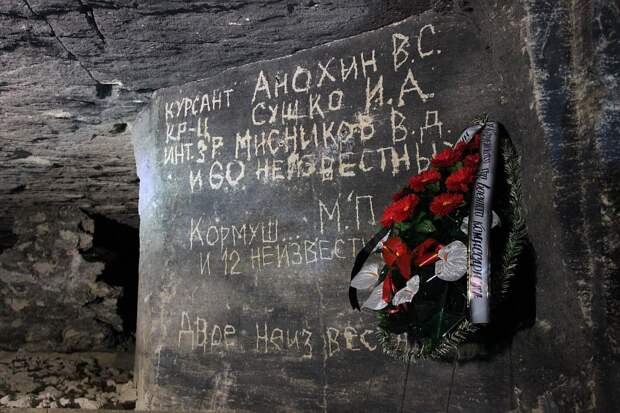 КУРСАНТ АНОХИН В.С.
КР-Ц СУШКО И.А
ИНТ.3Р МИСНИКОВ В.Д.
И 60 НЕИЗВЕСТНЫХ
КОРМУШ М.П
И 12 НЕИЗВЕСТ
ДВОЕ НЕИЗВЕС